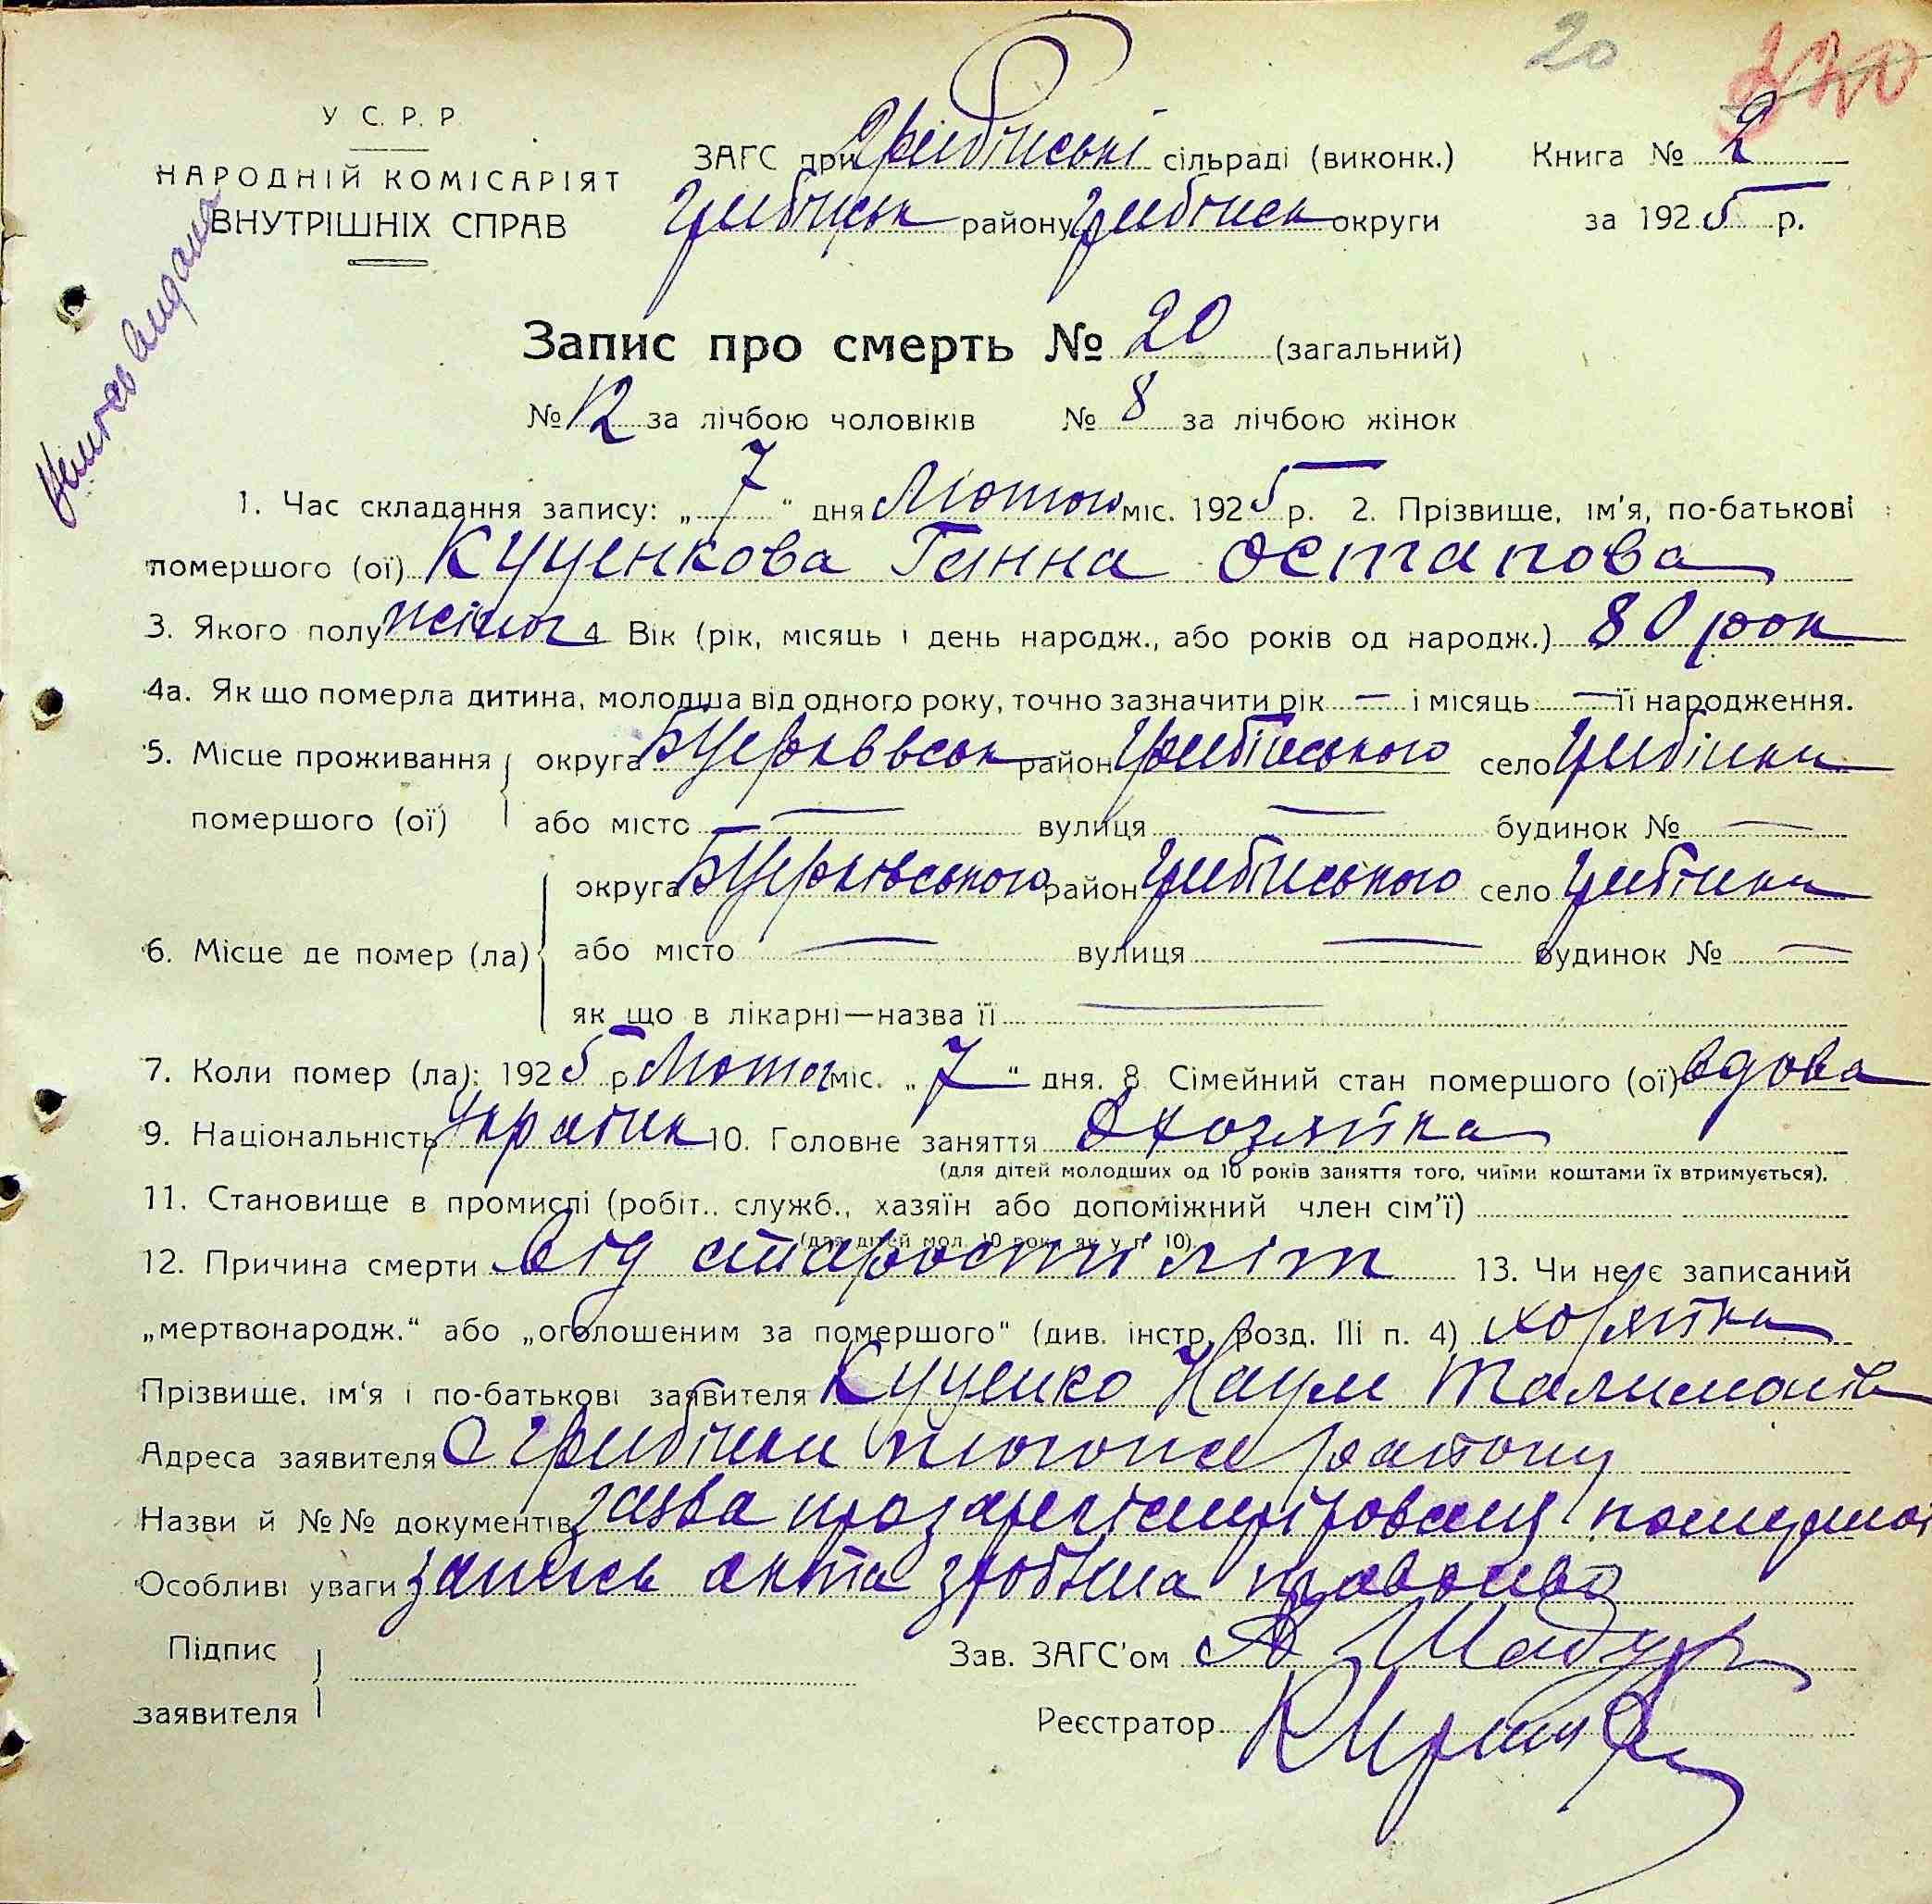 20
У С. Р. Р.
НАРОДНІЙ КОМІСАРІЯТ
ВНУТРІШНІХ СПРАВ
ЗАГС при Гребінські сільраді (виконк.) Книга № 2
району округи за 1925 р.
Запис про смерть № 20 (загальний)
№ 12 за лічбою чоловіків № 8 за лічбою жінок
1. Час складання запису: „7“ дня Лютого міс. 1925 р. 2. Прізвище, ім'я, по-батькові
помершого (ої) Куценкова Ганна Остапова
3. Якого полу жіноч 4 Вік (рік, місяць і день народж., або років од народж.) 80 рок
4а. Як що померла дитина, молодша від одного року, точно зазначити рік — і місяць — її народження.
5. Місце проживання округа БЦерківськ район Гребінського село Гребінки
помершого (ої) або місто — вулиця — будинок № —
округа БЦерківського район Гребінського село Гребінки
6. Місце де помер (ла) або місто — вулиця — будинок № —
як що в лікарні—назва її —
7. Коли помер (ла): 1925 р Лютого міс. „7“ дня. 8 Сімейний стан помершого (ої) вдова
9. Національність Українк 10. Головне заняття
(для дітей молодших од 10 років заняття того, чиїми коштами їх втримується).
11. Становище в промислі (робіт., служб., хазяїн або допоміжний член сім'ї)
(для дітей мол. 10 рок. як у п 10)
12. Причина смерти Від старости літ 13. Чи не є записаний
„мертвонародж.“ або „оголошеним за помершого“ (див. інстр. розд. III п. 4)
Прізвище, ім'я і по-батькові заявителя Куценко Наум
Адреса заявителя С Гребінки району
Назви й №№ документів заява
Особливі уваги запись акта
Підпис
заявителя
Зав. ЗАГС'ом
Реєстратор